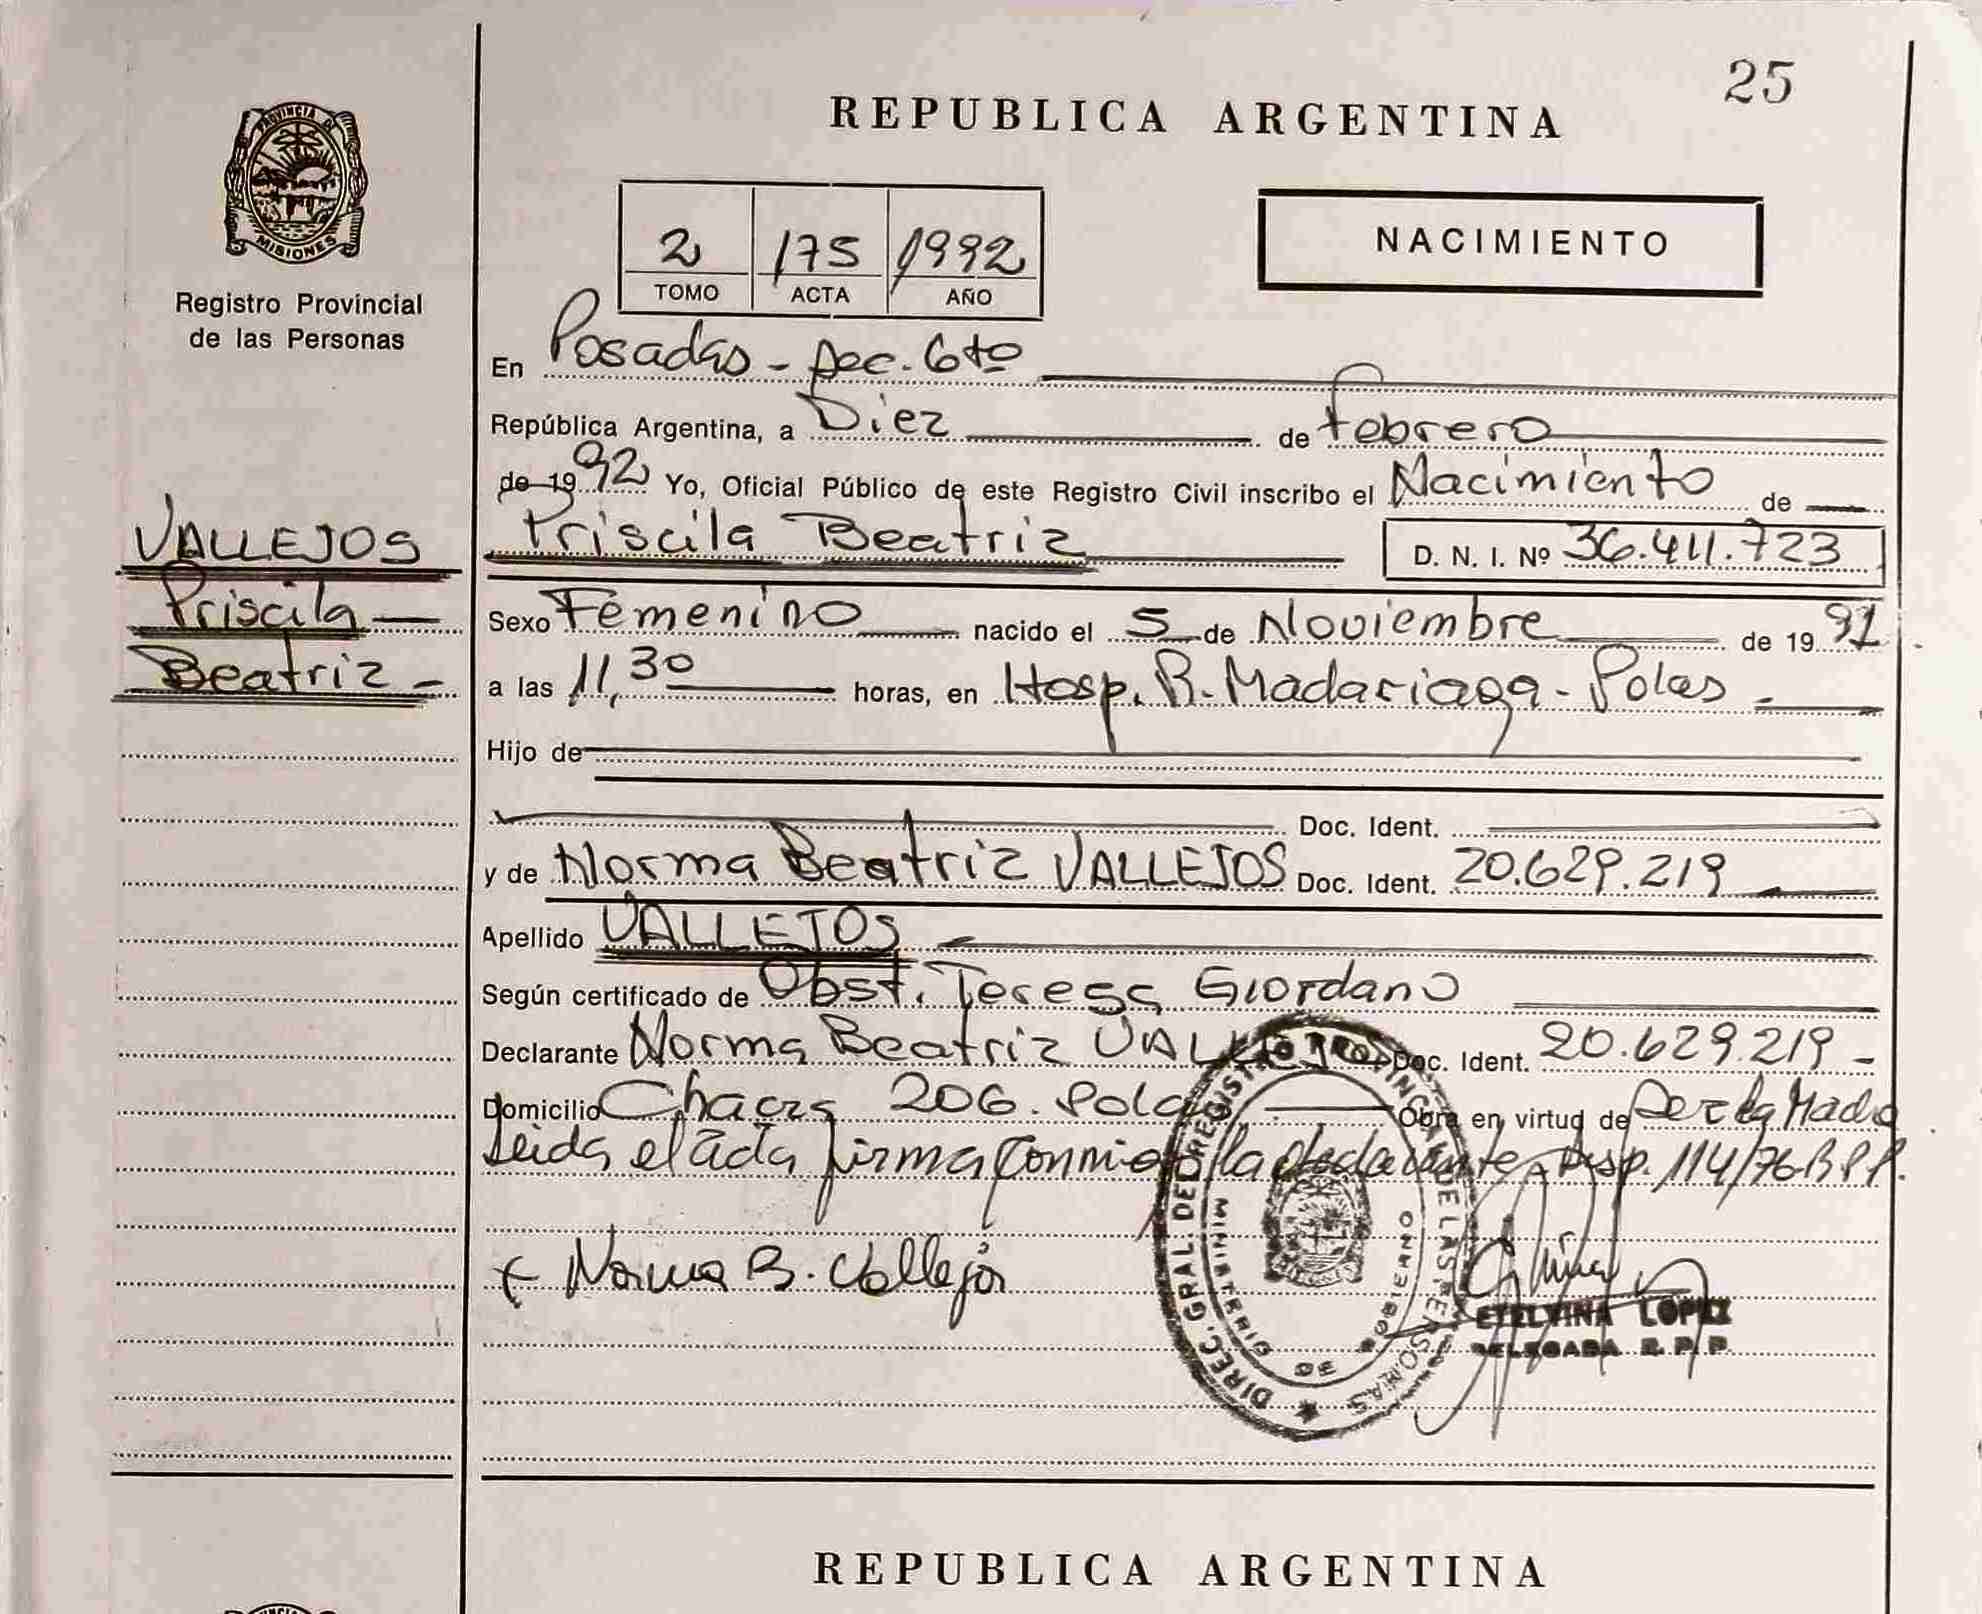 25
REPUBLICA ARGENTINA
PROVINCIA DE
MISIONES
Registro Provincial
de las Personas
2 175 1992
TOMO ACTA AÑO
NACIMIENTO
En Posadas - Sec. 6to
República Argentina, a Diez de febrero
de 1992 Yo, Oficial Público de este Registro Civil inscribo el Nacimiento de
VALLEJOS
Priscila
Beatriz -
Priscila Beatriz D. N. I. Nº 36.411.723
Sexo Femenino nacido el 5 de Noviembre de 1991
a las 11,30 horas, en Hosp. R. Madariaga - Pdas -
Hijo de
Doc. Ident.
y de Norma Beatriz VALLEJOS Doc. Ident. 20.629.219
Apellido VALLEJOS
Según certificado de Obst. Teresa Giordano
Declarante Norma Beatriz VALLEJOS Doc. Ident. 20.629.219 -
Domicilio Chacra 206. Pdas Obra en virtud de Ser la Madre
Leida el acta firma conmigo la declarante Disp. 114/76 R.P.P.
Norma B. Vallejos
DIREC. GRAL. DEL REGISTRO PROVINCIAL DE LAS PERSONAS
MINISTERIO DE GOBIERNO
ETELVINA LOPEZ
DELEGADA R. P. P.
REPUBLICA ARGENTINA